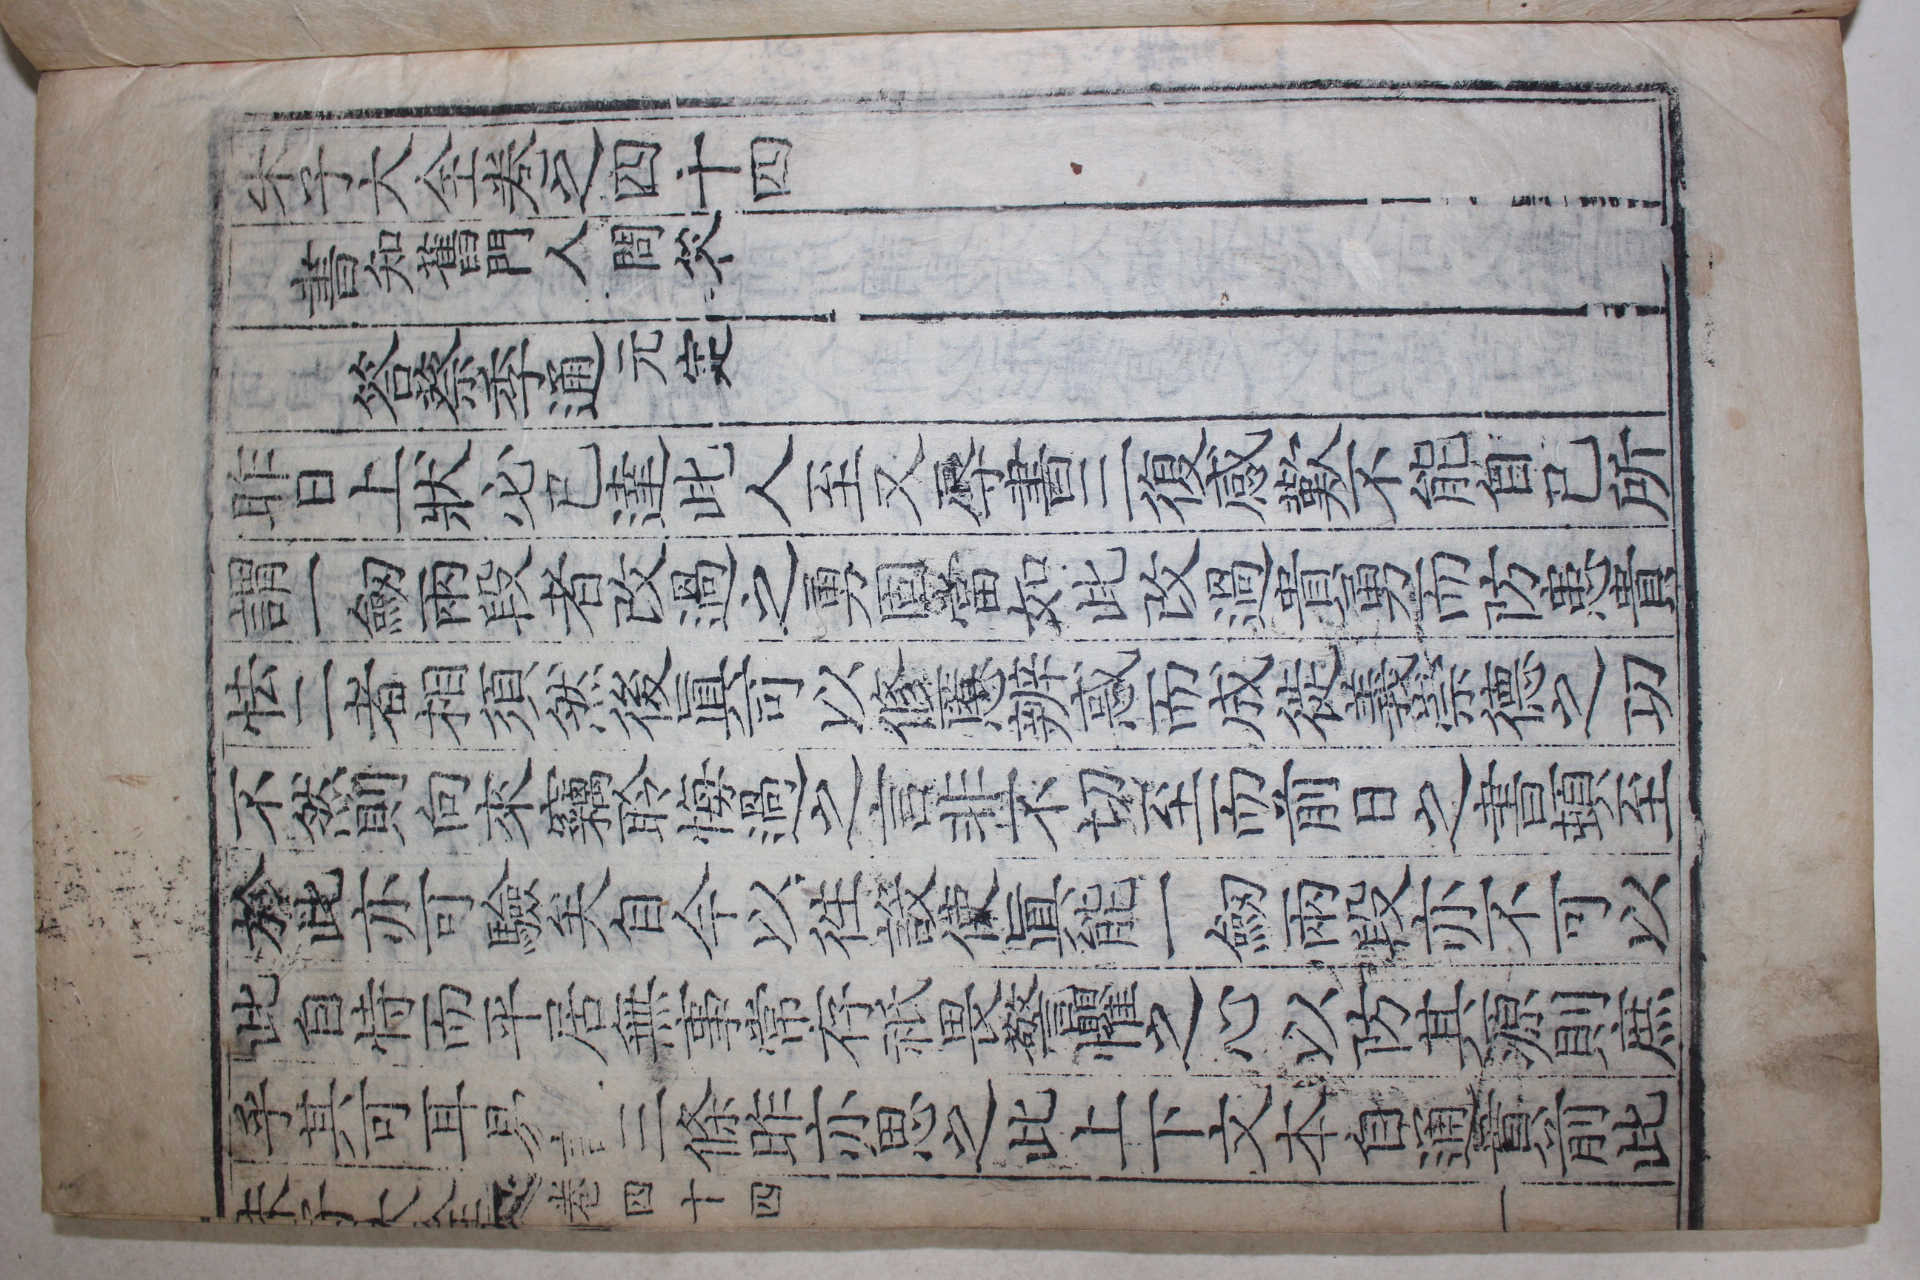 朱子大全卷之四十四
書知舊門人問答
答蔡季通元定
昨日上狀必已達此人至又辱書三復感歎不能自已所
謂一劒兩段者改過之勇固當如此改過貴勇而防患貴
怯二者相須然後眞可以修慝辨惑而成徙義崇德之功
不然則向來竊聆悔過之言非不切至而前日之書頓至
於此亦可驗矣自今以徃設使眞能一劒兩段亦不可以
此自恃而平居無事常存祗畏警懼之心以防其源則庶
乎其可耳易言三條昨亦思之此上下文本自通貫前此
朱子大全 卷四十四 一